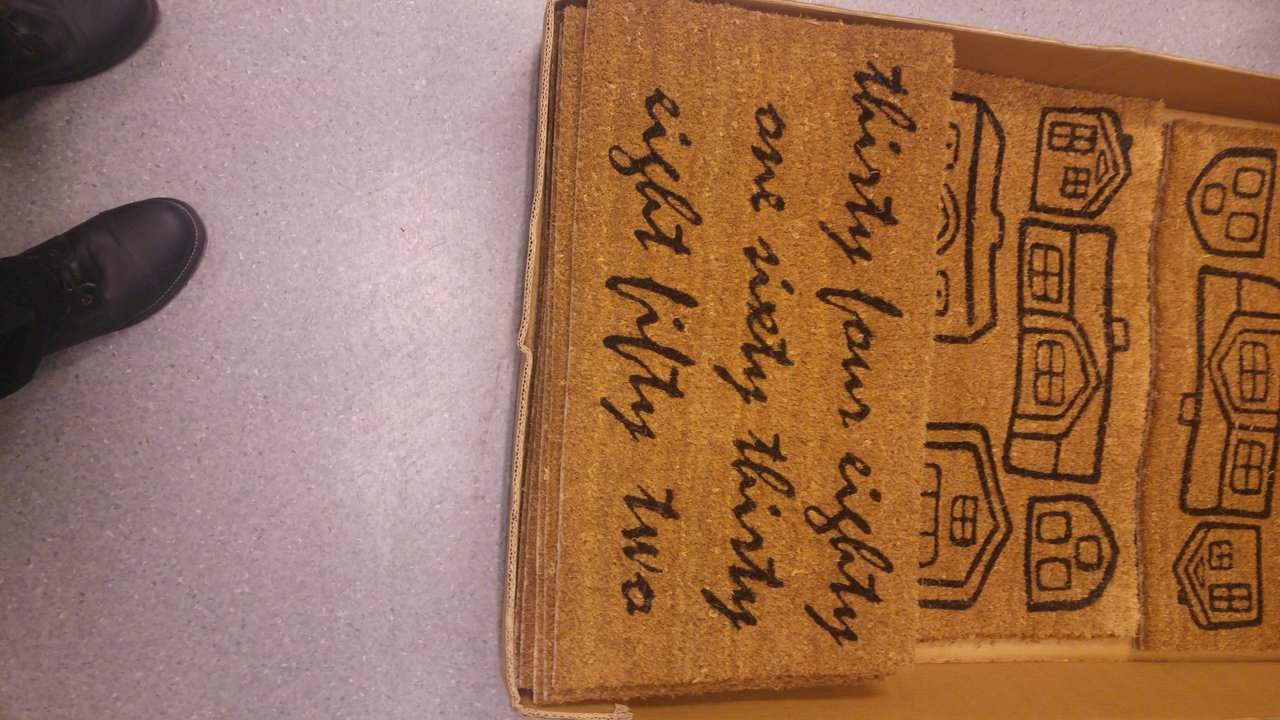 thirty four eighty
one sixty thirty
eight fifty two